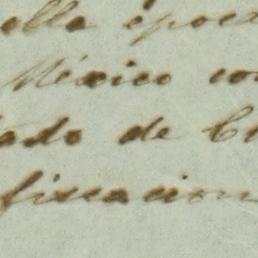 ella época
México con
tado de Ch
fiscacion